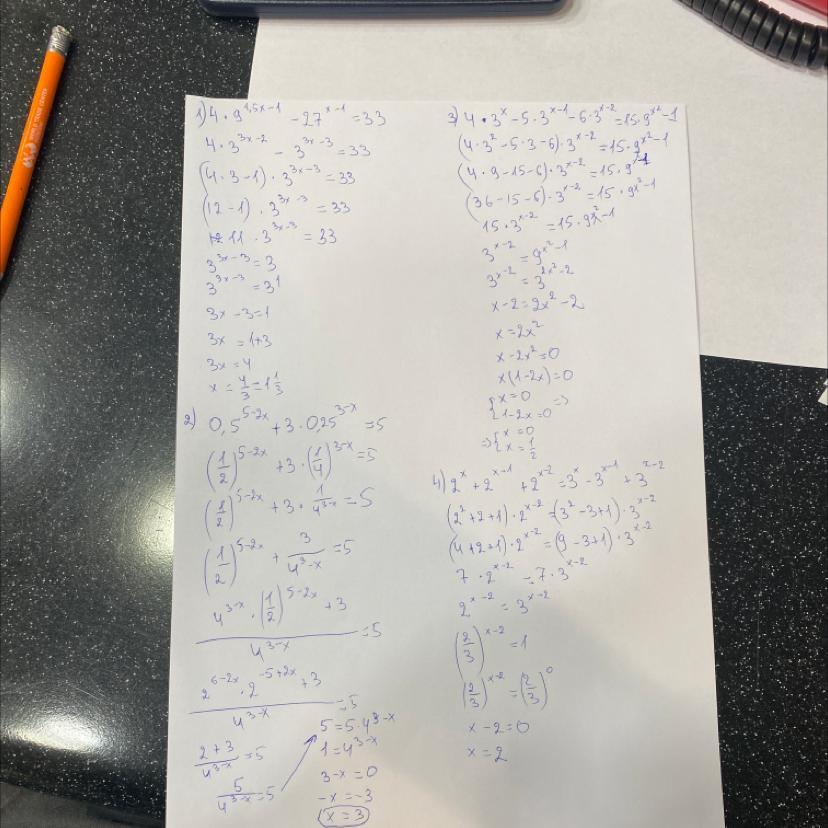 1) 4 · 9^{1,5x-1} - 27^{x-1} = 33
4 · 3^{3x-2} - 3^{3x-3} = 33
(4 · 3 - 1) · 3^{3x-3} = 33
(12 - 1) · 3^{3x-3} = 33
11 · 3^{3x-3} = 33
3^{3x-3} = 3
3^{3x-3} = 3^1
3x - 3 = 1
3x = 1 + 3
3x = 4
x = 4/3 = 1 1/3
2) 0,5^{5-2x} + 3 · 0,25^{3-x} = 5
(1/2)^{5-2x} + 3 · (1/4)^{3-x} = 5
(1/2)^{5-2x} + 3 · 1/4^{3-x} = 5
(1/2)^{5-2x} + 3/4^{3-x} = 5
(4^{3-x} · (1/2)^{5-2x} + 3)/4^{3-x} = 5
(2^{6-2x} · 2^{-5+2x} + 3)/4^{3-x} = 5
(2 + 3)/4^{3-x} = 5
5/4^{3-x} = 5
5 = 5 · 4^{3-x}
1 = 4^{3-x}
3 - x = 0
-x = -3
x = 3
3) 4 · 3^x - 5 · 3^{x-1} - 6 · 3^{x-2} = 15 · 9^{x^2-1}
(4 · 3^2 - 5 · 3 - 6) · 3^{x-2} = 15 · 9^{x^2-1}
(4 · 9 - 15 - 6) · 3^{x-2} = 15 · 9^{x^2-1}
(36 - 15 - 6) · 3^{x-2} = 15 · 9^{x^2-1}
15 · 3^{x-2} = 15 · 9^{x^2-1}
3^{x-2} = 9^{x^2-1}
3^{x-2} = 3^{2x^2-2}
x - 2 = 2x^2 - 2
x = 2x^2
x - 2x^2 = 0
x(1 - 2x) = 0
{ x = 0
{ 1 - 2x = 0 =>
=> { x = 0
{ x = 1/2
4) 2^x + 2^{x-1} + 2^{x-2} = 3^x - 3^{x-1} + 3^{x-2}
(2^2 + 2 + 1) · 2^{x-2} = (3^2 - 3 + 1) · 3^{x-2}
(4 + 2 + 1) · 2^{x-2} = (9 - 3 + 1) · 3^{x-2}
7 · 2^{x-2} = 7 · 3^{x-2}
2^{x-2} = 3^{x-2}
(2/3)^{x-2} = 1
(2/3)^{x-2} = (2/3)^0
x - 2 = 0
x = 2